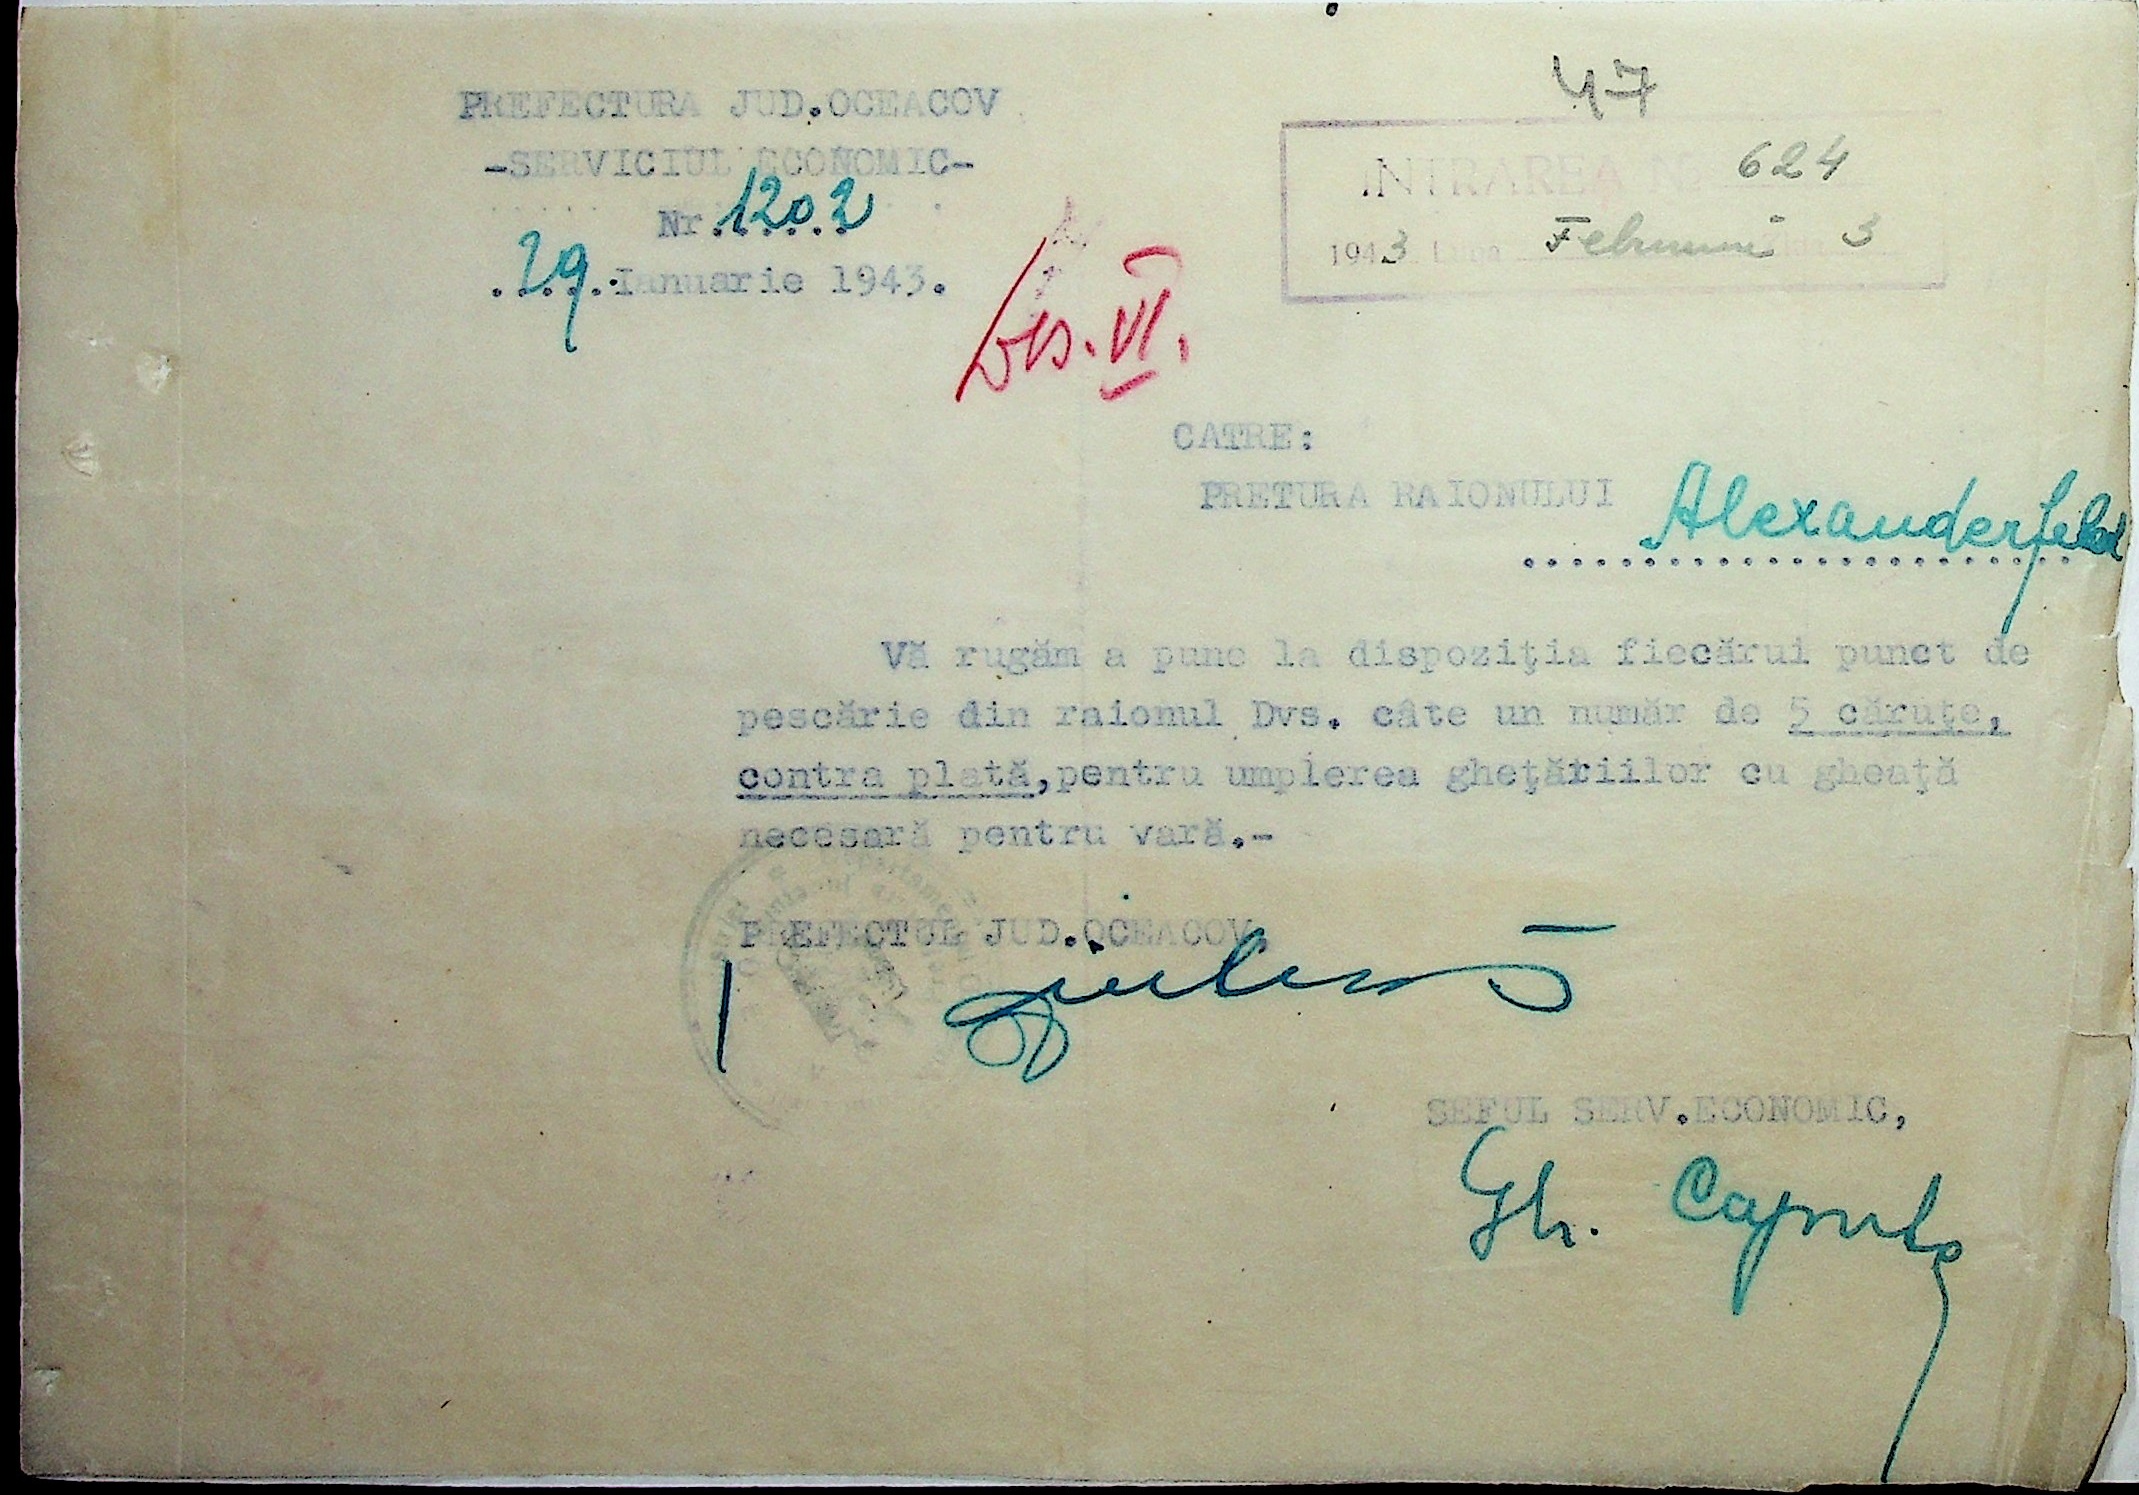 47
PREFECTURA JUD.OCEACOV
-SERVICIUL ECONOMIC-
Nr.1202
29 Ianuarie 1943.
INTRAREA No 624
1943 Luna Februarie Ziua 3
VI.
CATRE:
PRETURA RAIONULUI
Alexanderfeld
Vă rugăm a pune la dispoziţia fiecărui punct de
pescărie din raionul Dvs. câte un număr de 5 căruţe,
contra plată, pentru umplerea gheţăriilor cu gheaţă
necesară pentru vară.-
PREFECTUL JUD.OCEACOV,
SEFUL SERV.ECONOMIC,
Gh.